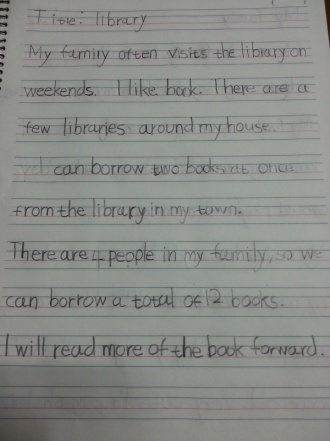 Title: library
My family often visits the library on
weekends. I like book. There are a
few libraries around my house.
can borrow two books at once
from the library in my town.
There are 4 people in my family, so we
can borrow a total of 12 books.
I will read more of the book forward.